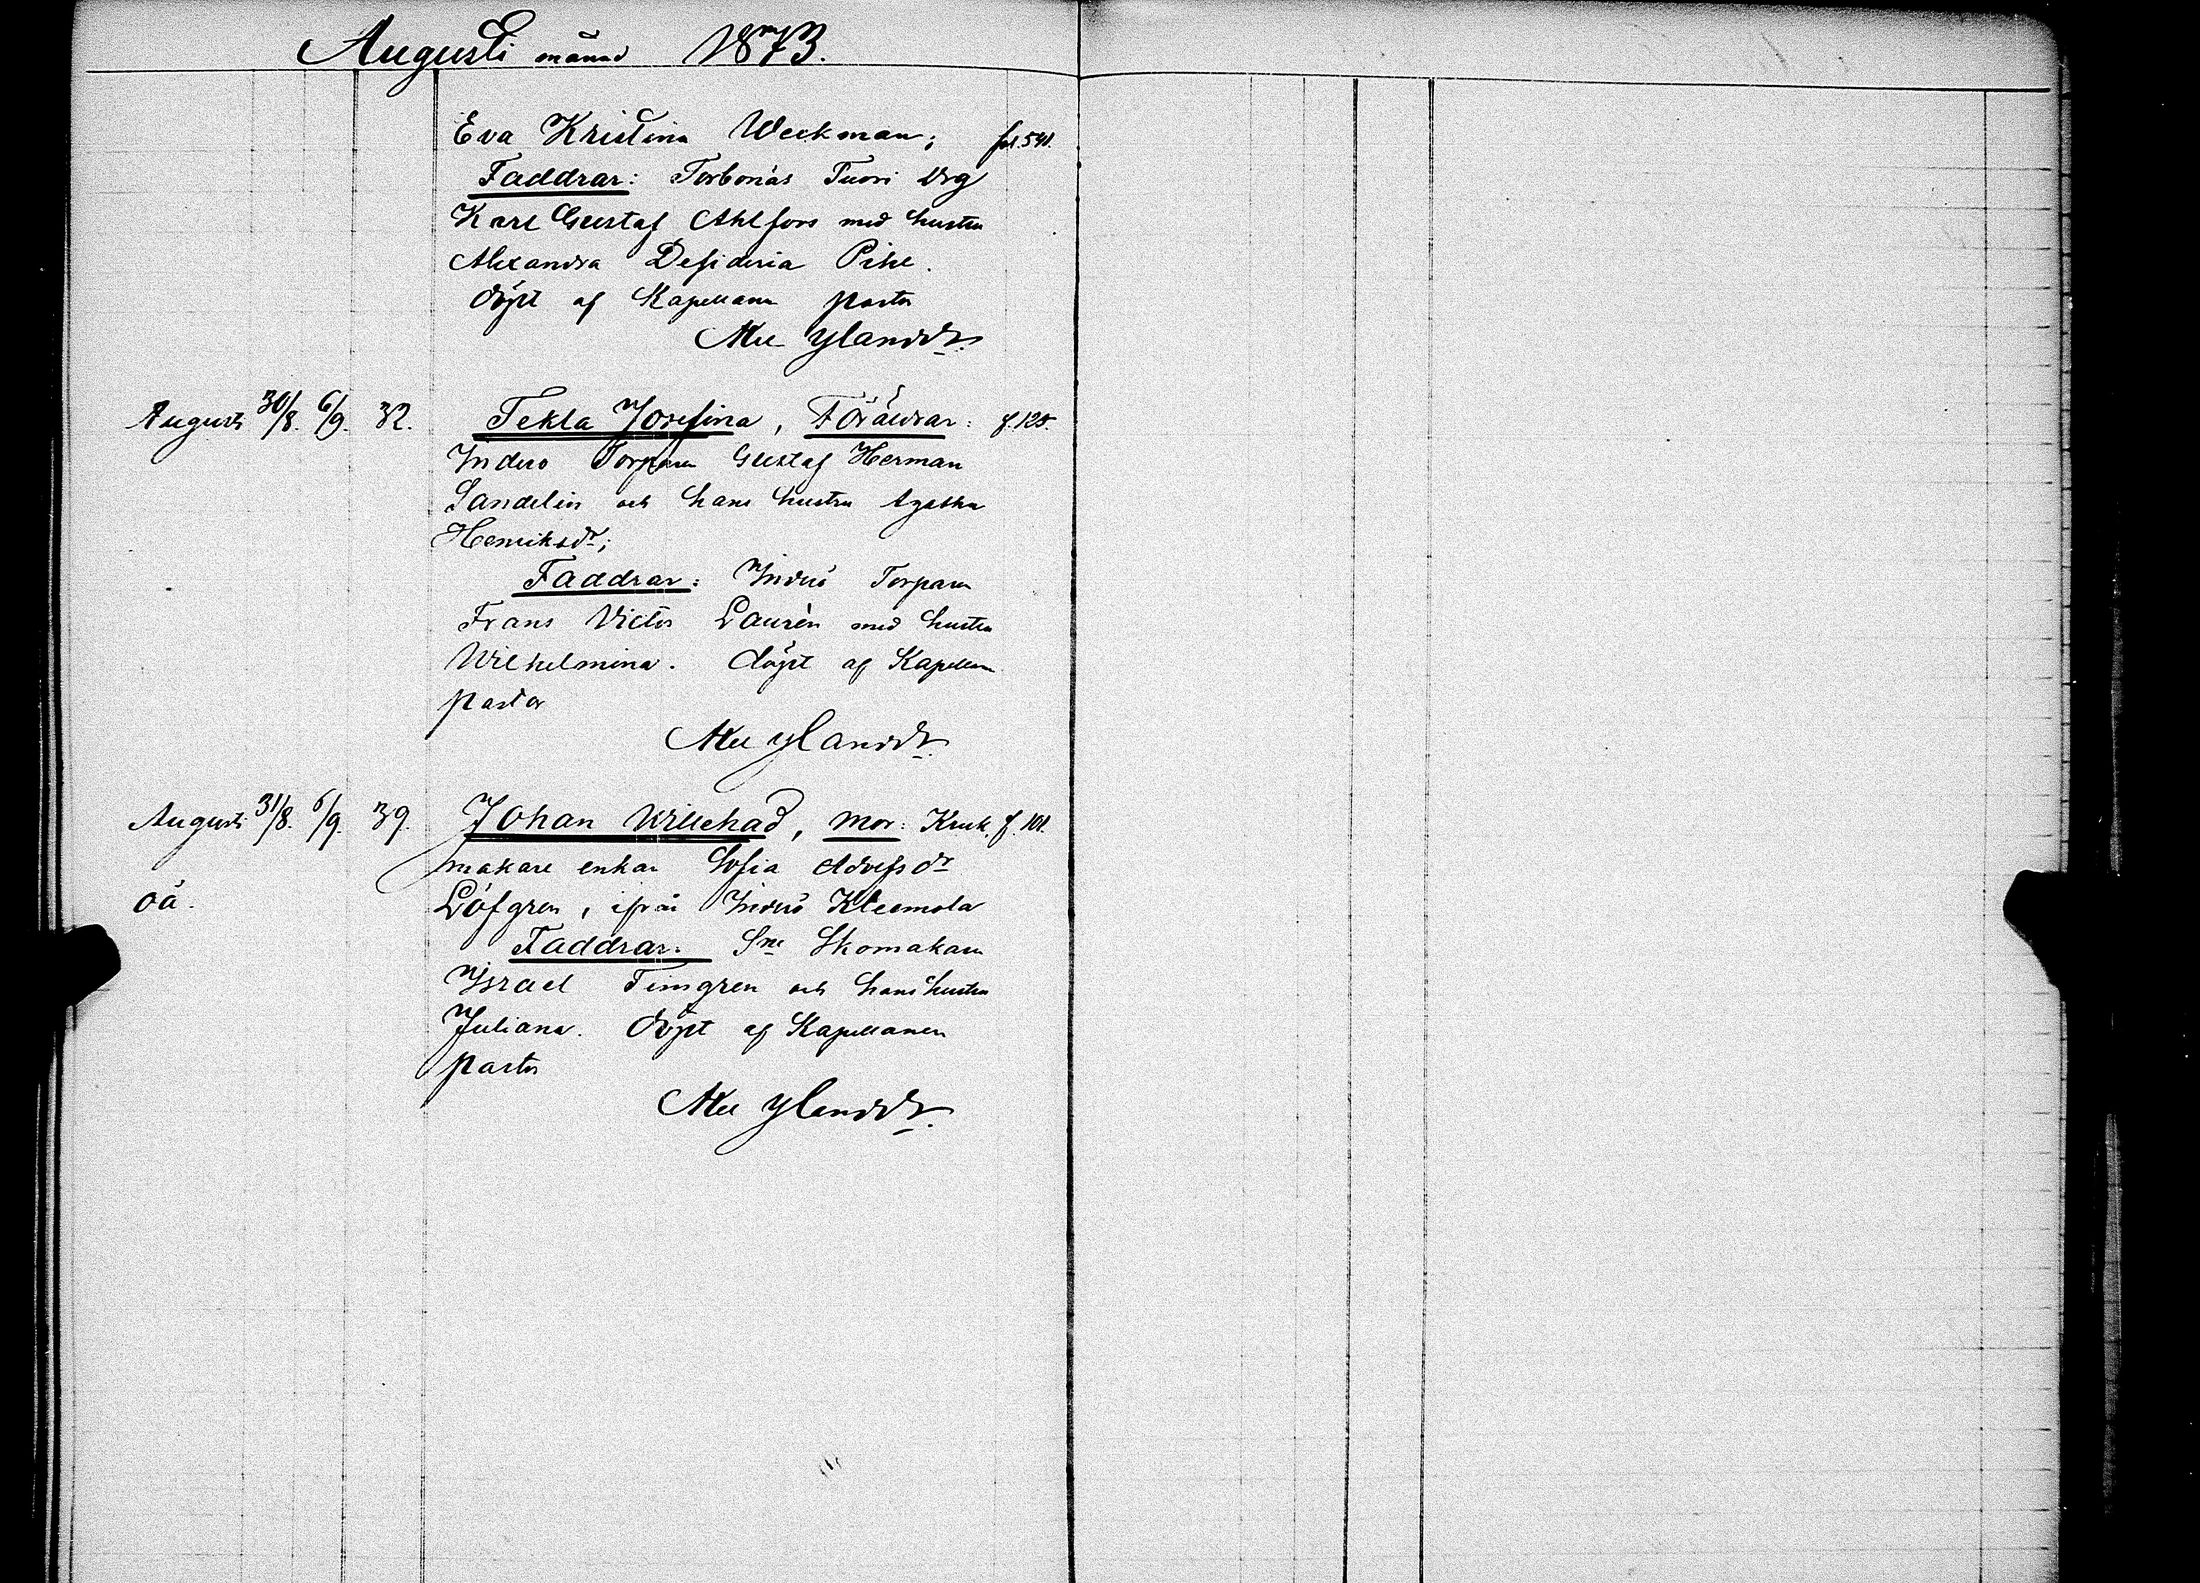 Augusti månad 1873.
Eva Kristina Weckman; fol. 541.
Faddrar: Torbonäs Tuori Drg
Karl Gustaf Ahlfors med hustru
Alexandra Desideria Pihl.
döpt af Kapellanen pastor
Ylandr.
Augusti 30/8. 6/9. 32. Tekla Josefina, Föräldrar: f. 125.
Inderö Torparen Gustaf Herman
Sandelin och hans hustru Agatha
Henriksdr;
Faddrar: Inderö Torparen
Frans Victor Laurén med hustru
Wilhelmina. döpt af Kapellan
pastor
Ylandr.
Augusti 31/8. 6/9. 39. Johan Willehad, Mor: Kruk. f. 101.
makare enkan Sofia Adolfsdr
Löfgren, ifrån Inderö Kleemola
Faddrar: Sne Skomakaren
Israel Timgren och hans hustru
oä.
Juliana. döpt af Kapellanen
pastor
Ylandr.